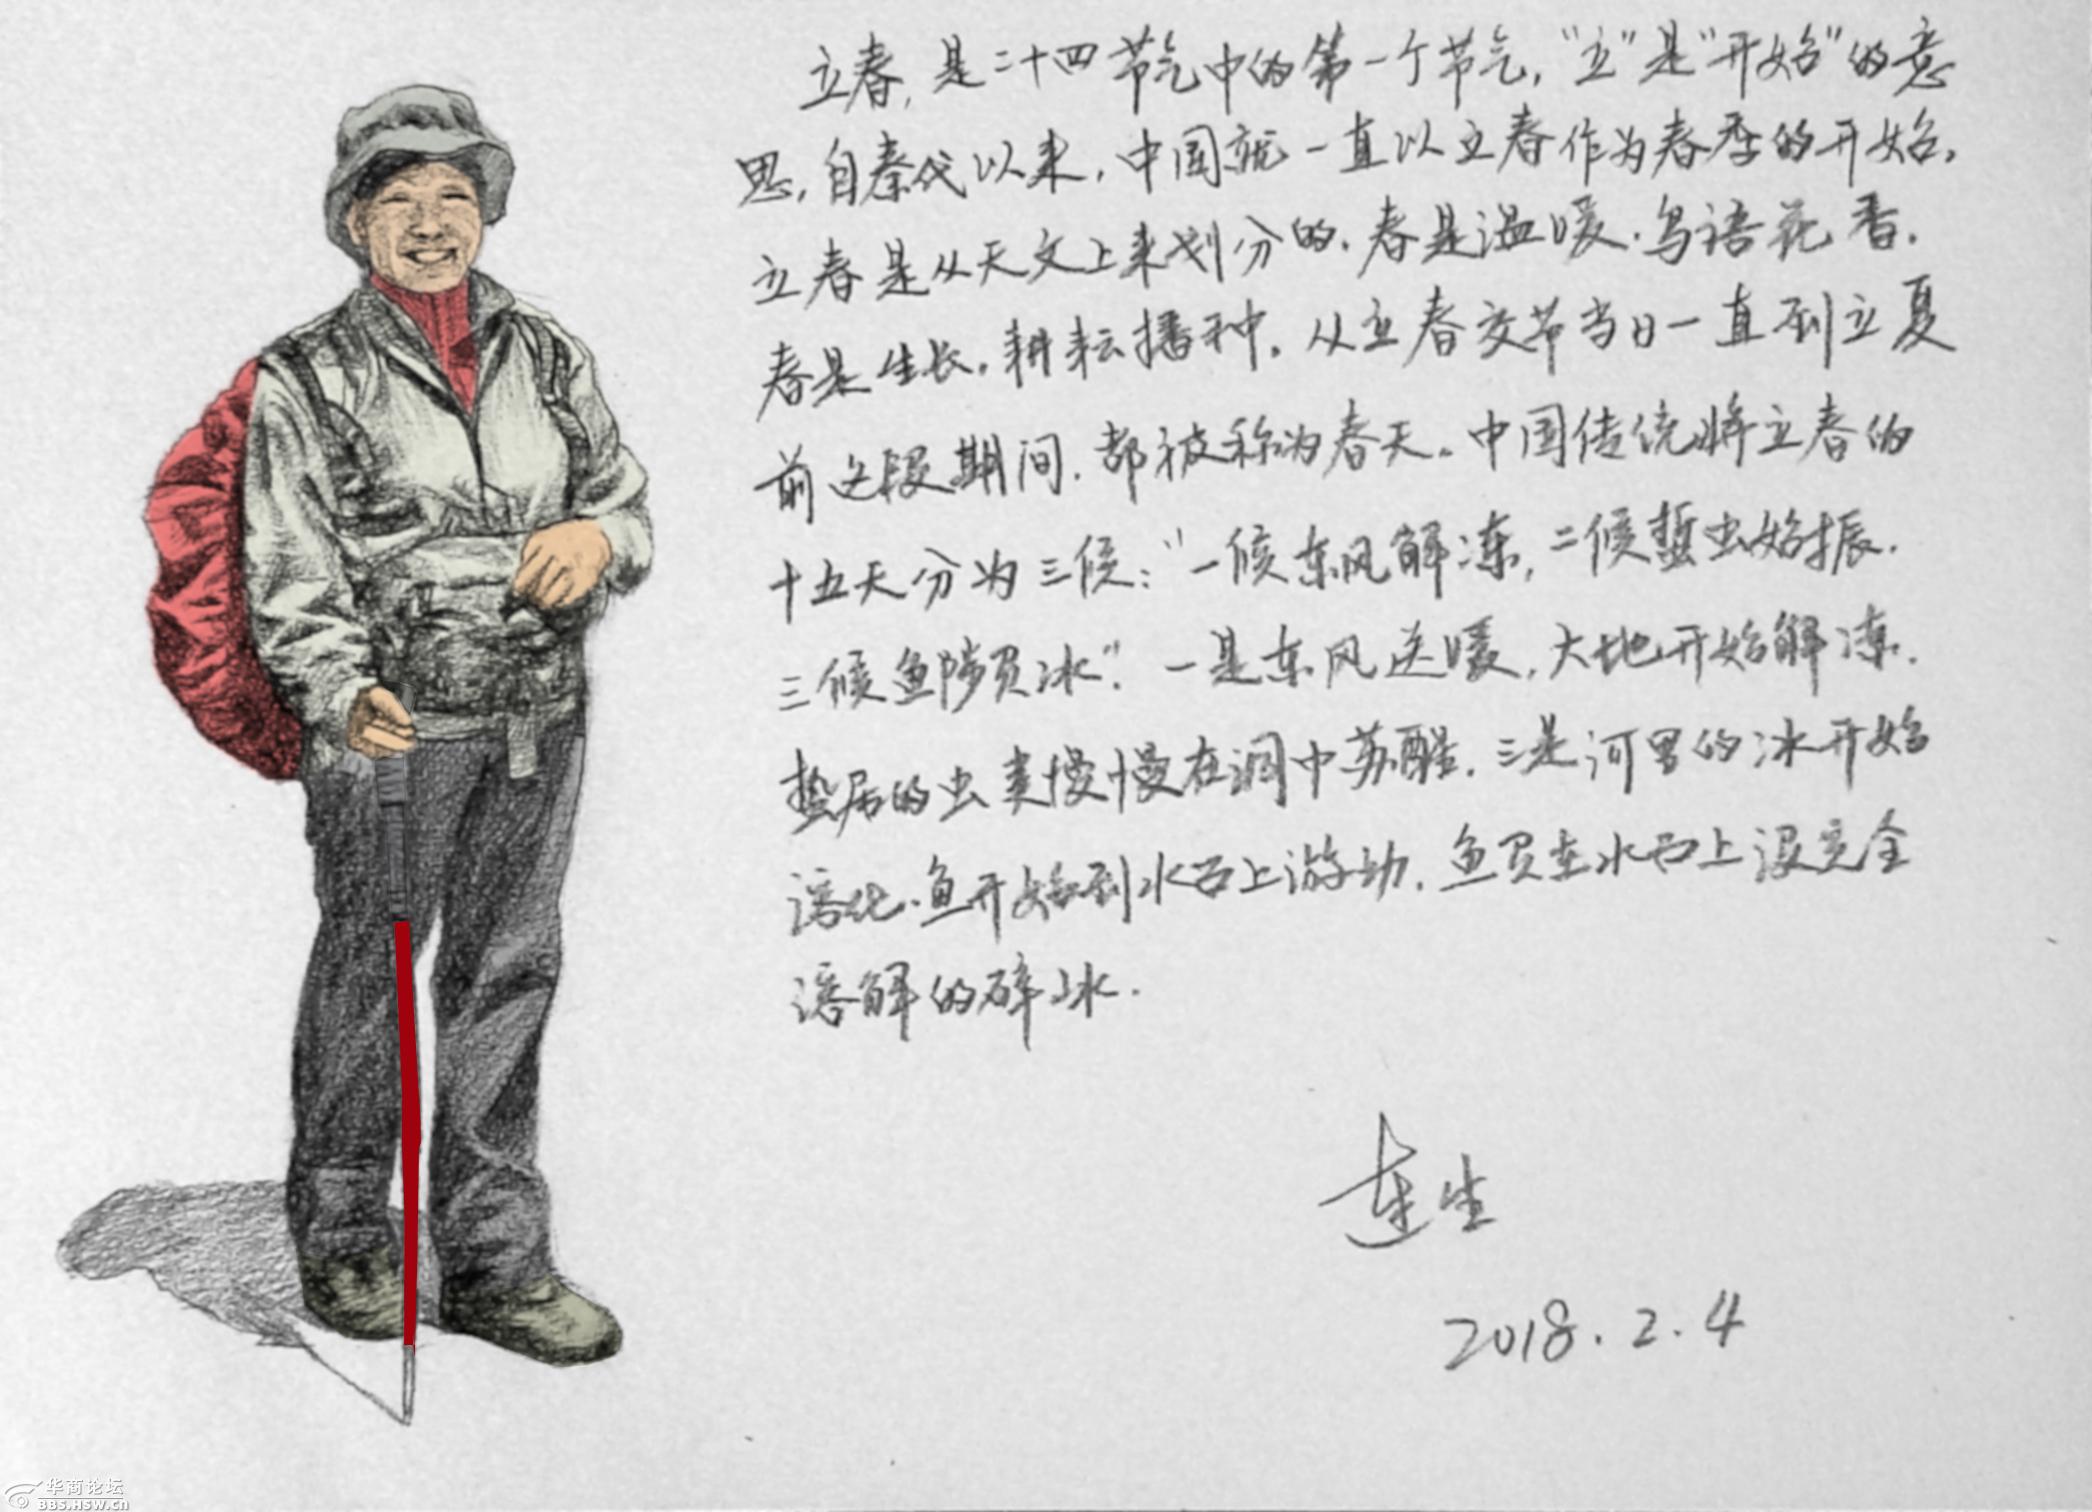 立春,是二十四节气中的第一个节气,"立"是"开始"的意
思,自秦代以来,中国就一直以立春作为春季的开始。
立春是从天文上来划分的.春是温暖.鸟语花香.
春是生长,耕耘播种。从立春交节当日一直到立夏
前这段期间.都被称为春天。中国传统将立春的
十五天分为三候:"一候东风解冻,二候蜇虫始振.
三候鱼陟负冰".一是东风送暖,大地开始解冻.
蛰居的虫类慢慢在洞中苏醒.三是河里的冰开始
溶化.鱼开始到水面上游动.鱼负在水面上没完全
溶解的碎冰.
莲生
2018.2.4
华商论坛
BBS.HSW.CN